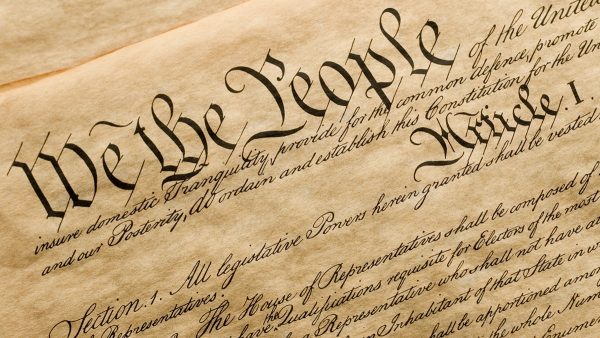 We the People of the Unite
insure domestic Tranquility, provide for the common defence, promote
and our Posterity, do ordain and establish this Constitution for the Un
Article. I.
Section. 1. All legislative Powers herein granted shall be vested
of Representatives.
The House of Representatives shall be composed of
have the Qualifications requisite for Electors of the most
a Representative who shall not have
Inhabitant of that State in
shall be apportioned
the whole Num